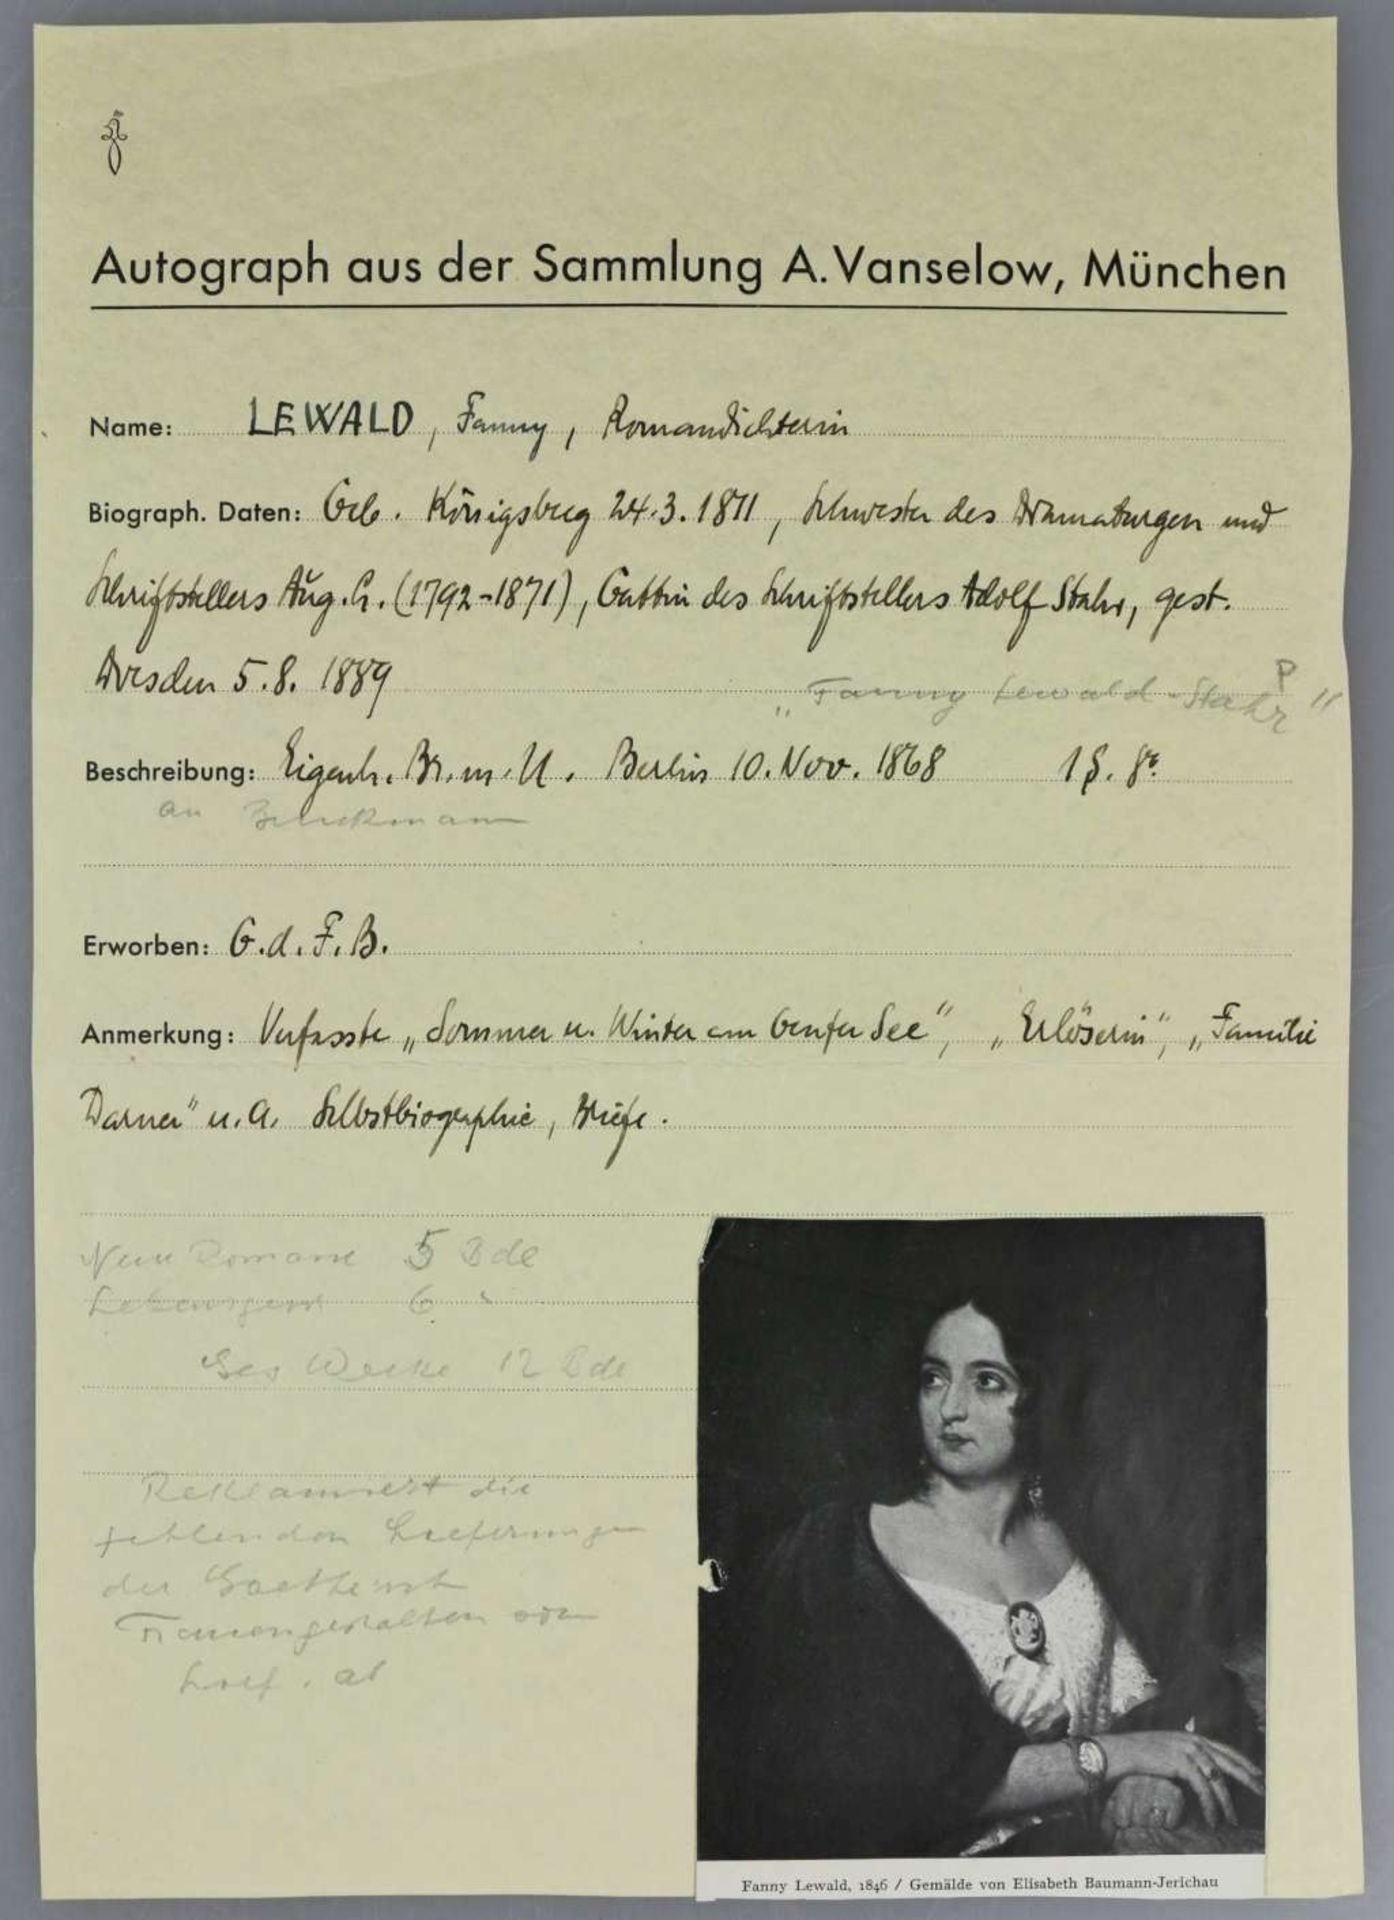 Autograph aus der Sammlung A. Vanselow, München
Name: LEWALD, Fanny, Romandichterin
Biograph. Daten: Geb. Königsberg 24.3.1811, Schwester des Dramaturgen und
Schriftstellers Aug. L. (1792-1871), Gattin des Schriftstellers Adolf Stahr, gest.
Dresden 5.8.1889
P
„Fanny Lewald-Stahr"
Beschreibung: Eigenh. Br. m. U. Berlin 10. Nov. 1868 1 S. 8°.
an Bruckmann
Erworben: G.d.F.B.
Anmerkung: Verfasste „Sommer u. Winter am Genfer See", „Erlöserin", „Familie
Darner" u. a. Selbstbiographie, Briefe.
Neue Romane 5 Bde
6 "
Ges Werke 12 Bde
Reklamiert die
fehlenden Lieferungen
der
Frauengestalten von
Lief. ab
Fanny Lewald, 1846 / Gemälde von Elisabeth Baumann-Jerichau